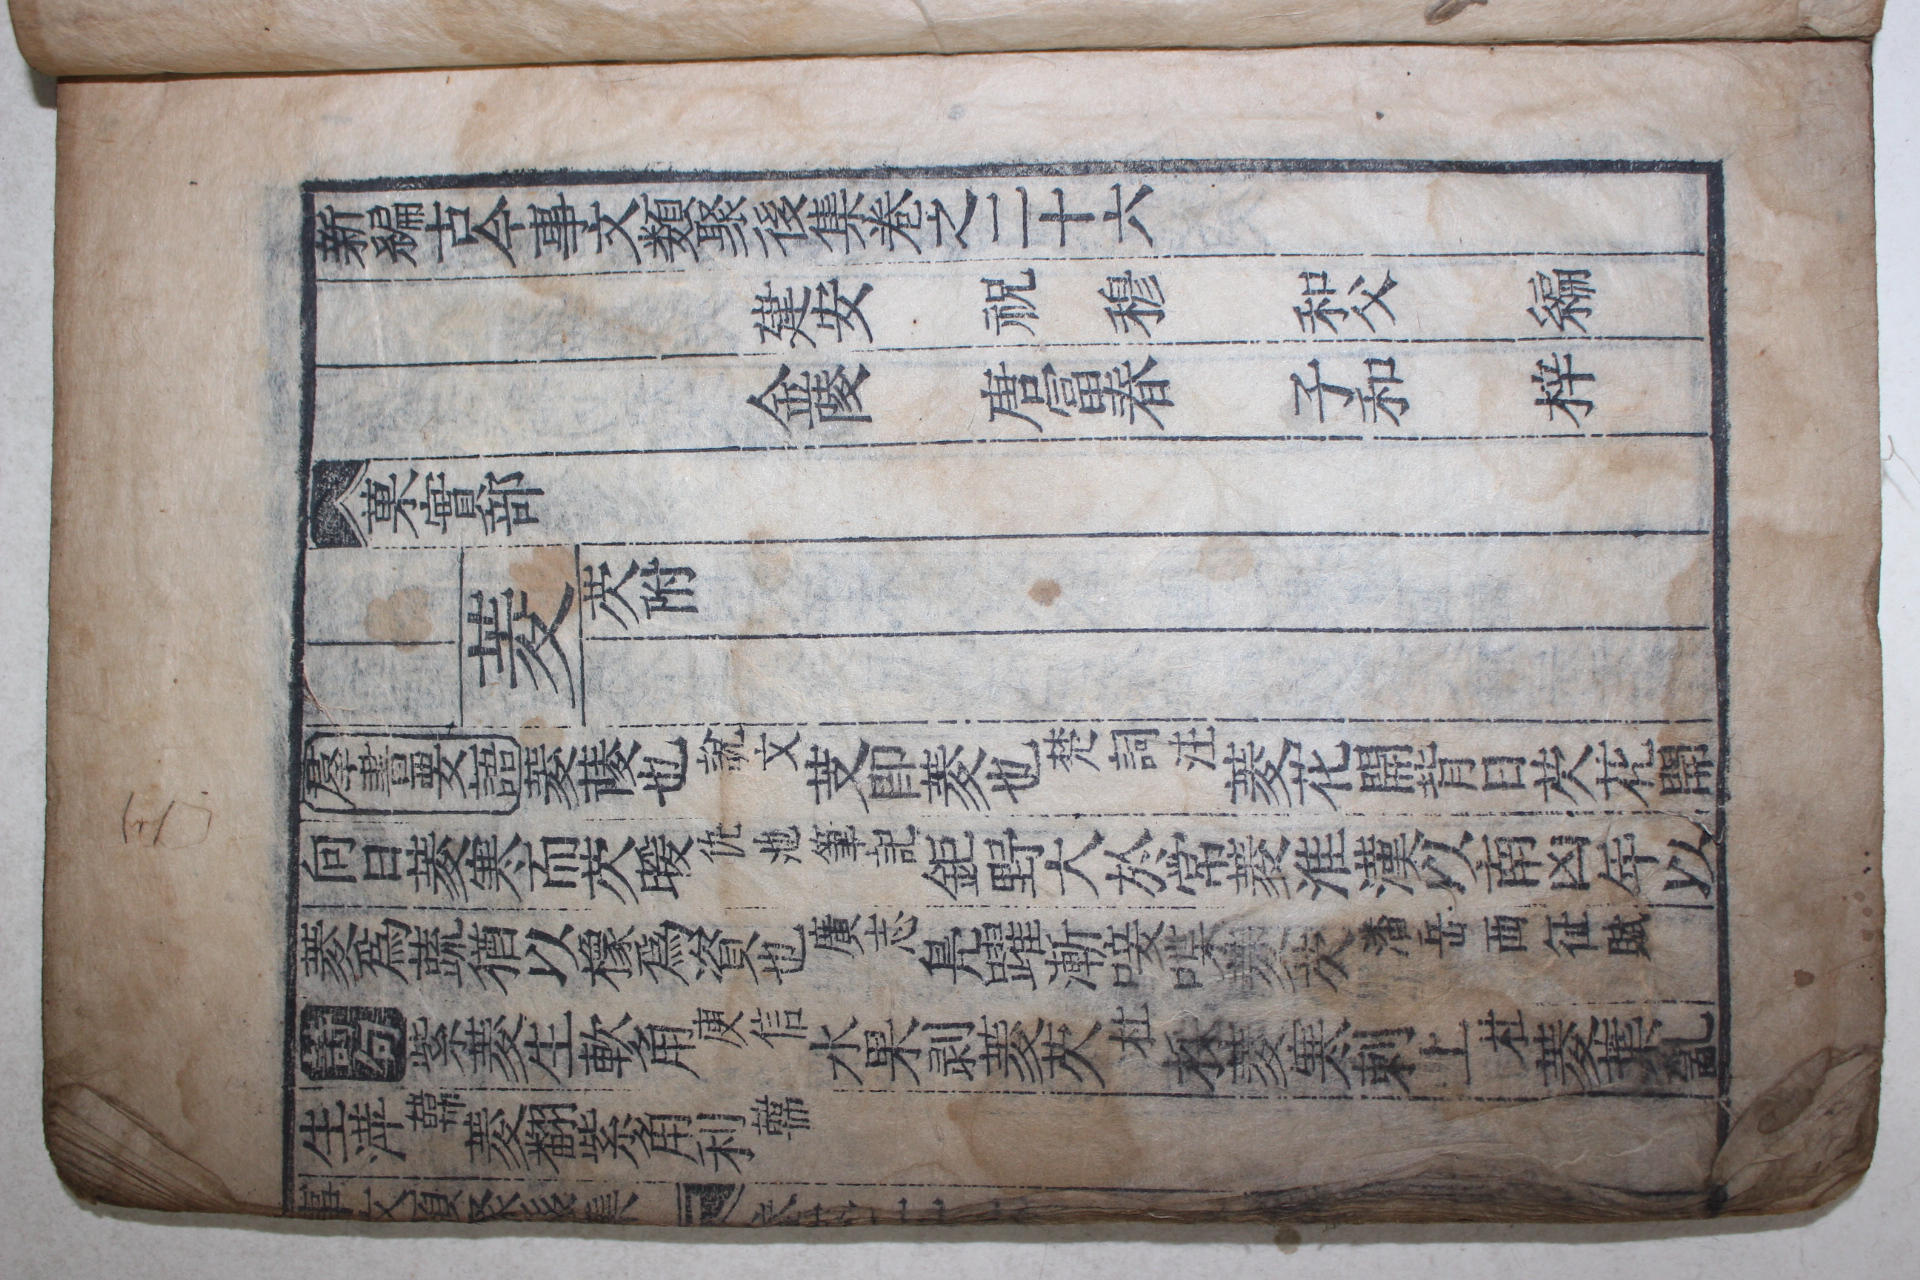 新編古今事文類聚後集卷之二十六
建安 祝 穆 和父 編
金陵 唐富春 子和 梓
菓實部
菱 芡附
羣書要語 菱蔆也說文芰即菱也楚詞注菱花開背日芡花開
向日菱寒而芡暖仇池筆記鉅野大於常菱淮漢以南凶年以
菱爲蔬猶以橡爲資也廣志鳧躍漸唼喋菱芡潘岳西征賦
詩句 紫菱生軟角庾信水果剥菱芡杜採菱寒刺上杜菱葉亂
生萍韓菱翻紫角利韓
事文類聚後集